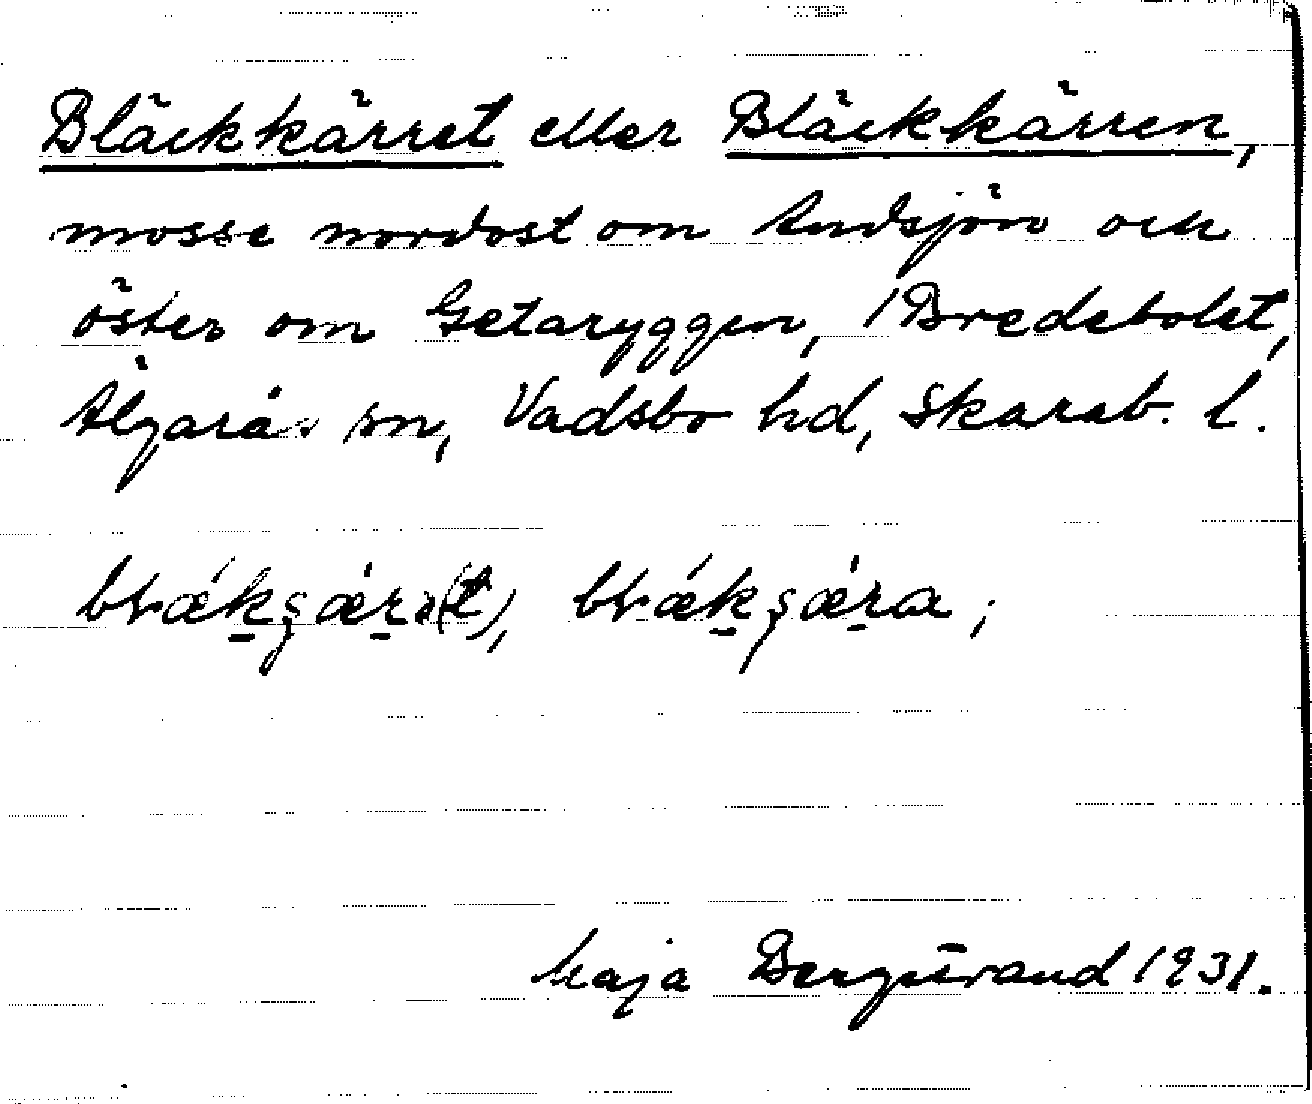 Bläckkärret eller Bläckkärren,
mosse nordost om Andsjön och
öster om Getaryggen, Bredebolet,
Älgarås sn, Vadsbo hd, Skarab. l.
Maja Bergstrand 1931.